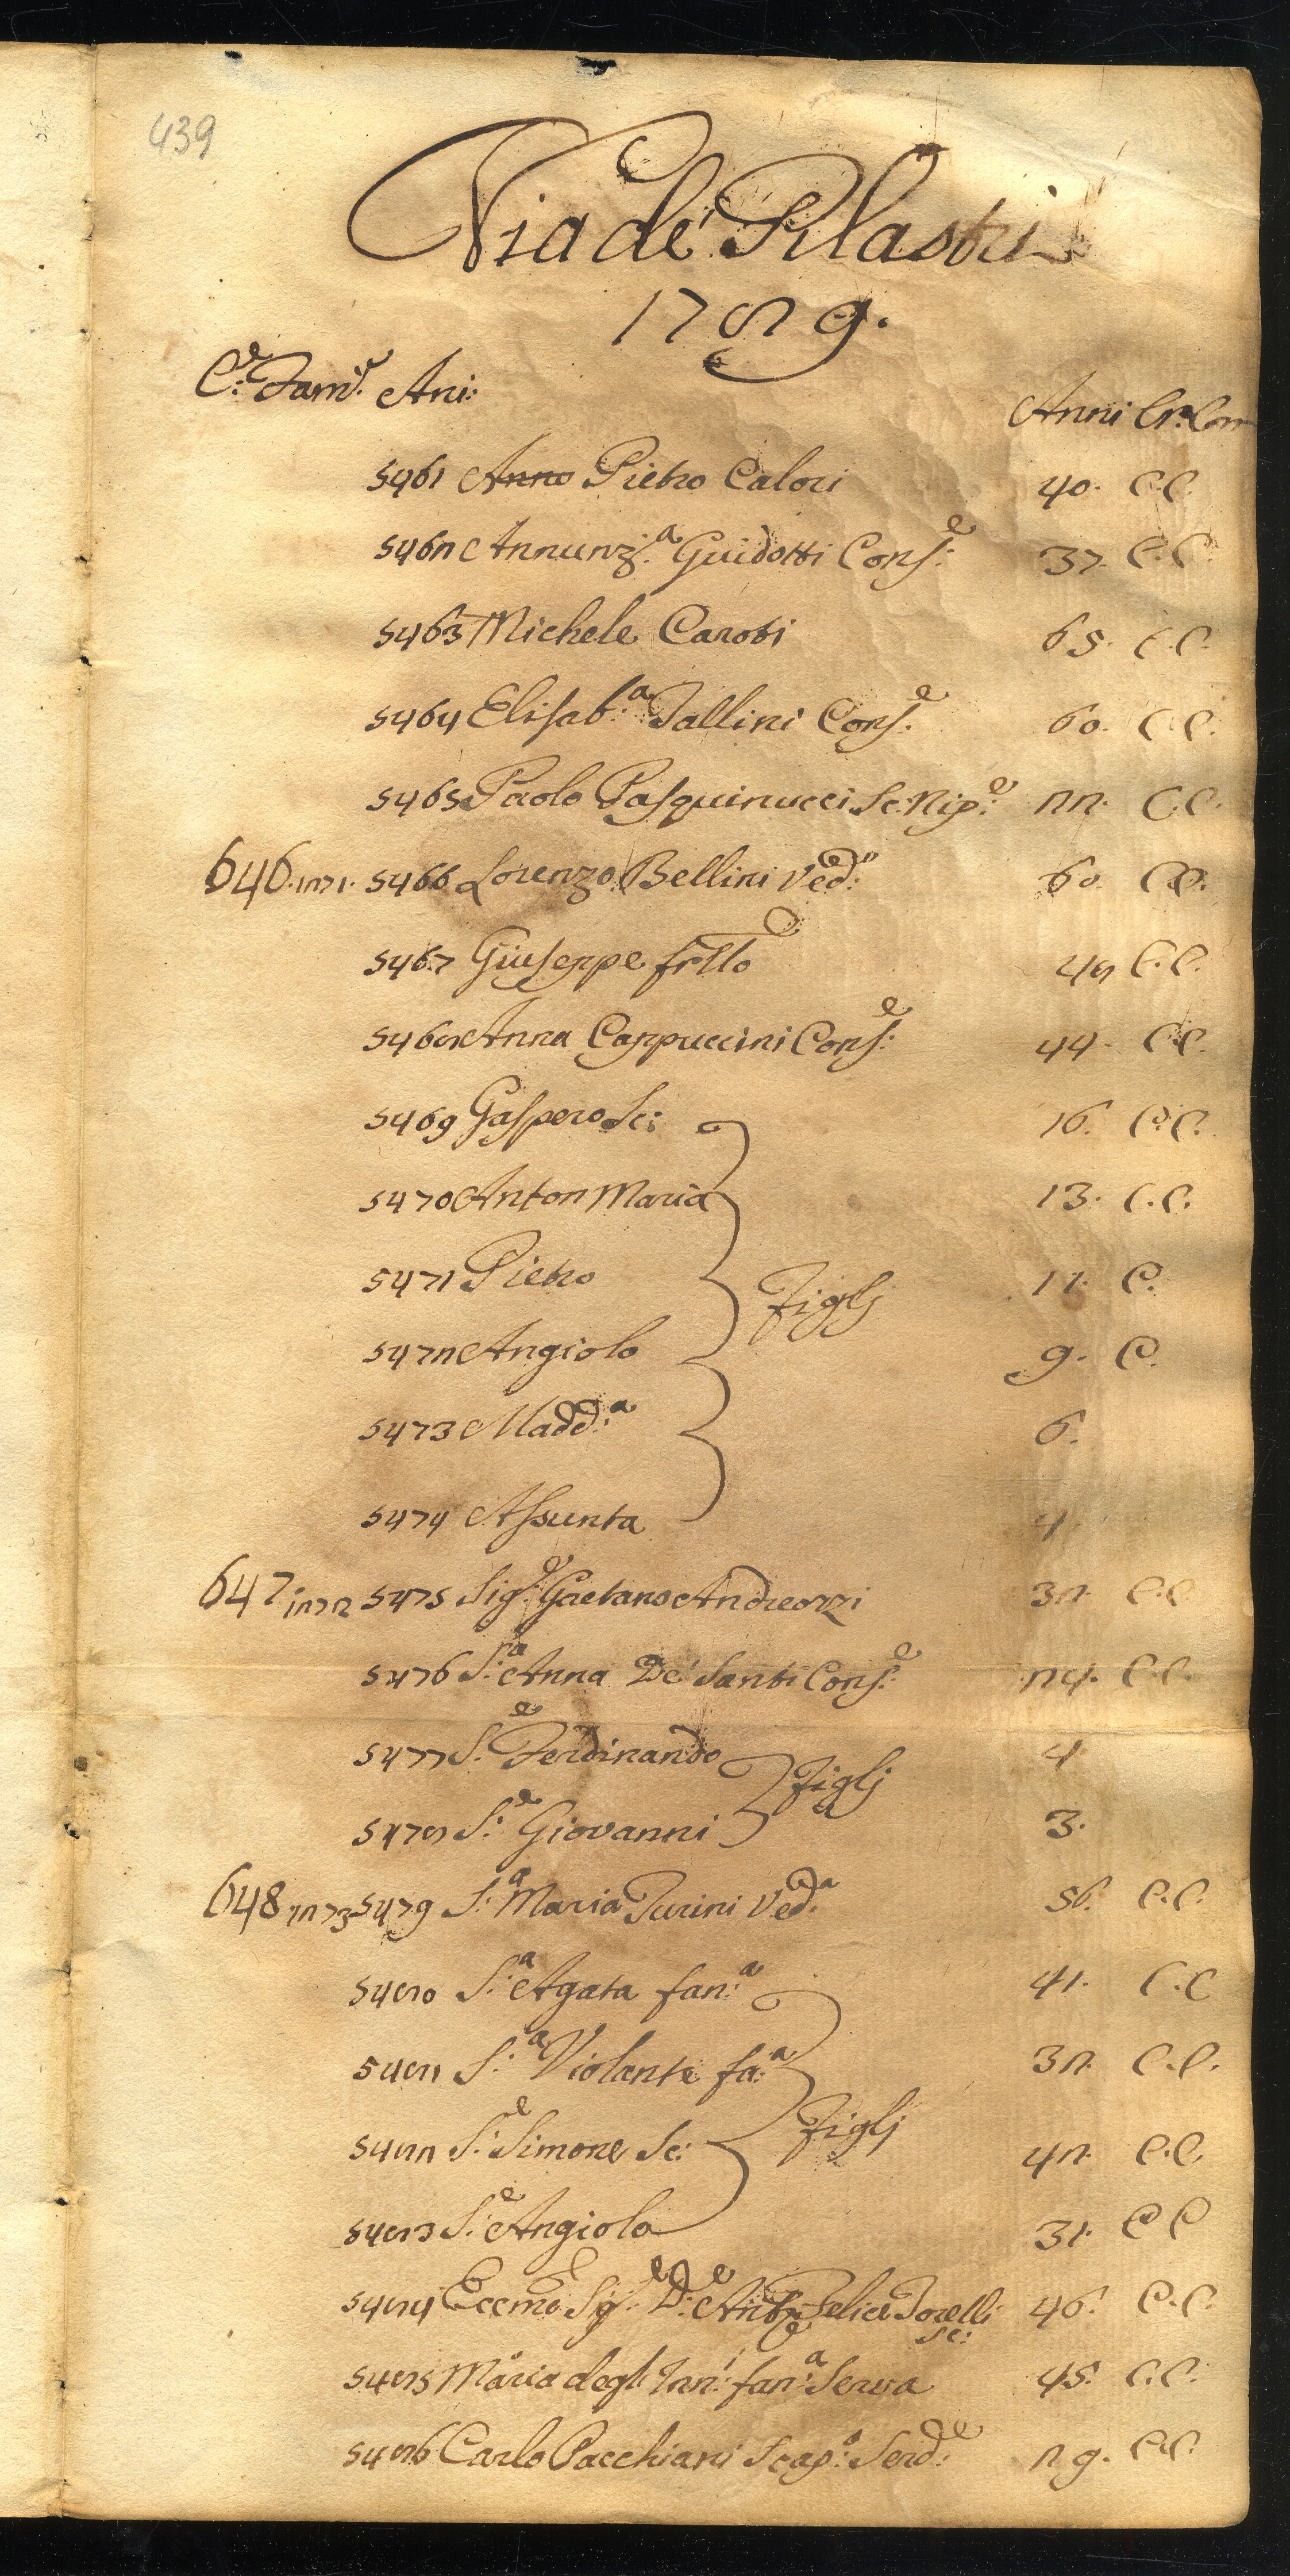 439
Via de' Pilastri
1789.
C.e Fam.e Ani:
Anni Cr. Com
5461 Anno Pietro Calori 40. C.C.
5462 Annunz.a Guidotti Cons.e 37. C.C.
5463 Michele Carobi 65. C.C.
5464 Elisab.a Tallini Cons.e 60. C.C.
5465 Paolo Pasquinucci Sc. Nip.e 22. C.C.
646. 1271. 5466 Lorenzo Bellini Ved.o 60. C.C.
5467 Giuseppe frllo 48 C.C.
5468 Anna Cappuccini Cons.e 44. C.C.
5469 Gaspero Sc: 16. C.C.
5470 Anton Maria 13. C.C.
5471 Pietro 11. C.
Figlj
5472 Angiolo 9. C.
5473 Madd.a 6.
5474 Assunta 4
647 1272 5475 Sig.e Gaetano Andreozzi 32. C.C
5476 S.ra Anna De' Santi Cons.e 24. C.C.
5477 S.e Ferdinando 4
Figlj
5478 S.e Giovanni 3.
648 1273 5479 S.a Maria Turini Ved.a 56. C.C.
5480 S.a Agata fan.a 41. C.C
5481 S.a Violante fa.a 32. C.C.
Figlj
5482 S.e Simone Sc: 42. C.C.
5483 S.e Angiolo 31. C C
5484 Eccmo Sig.e D.e Ant. Felice Torelli 46. C.C.
Sc:
5485 Maria degl'Inn.i fan.a Serva 45. C.C.
5486 Carlo Pacchiani Scap.o Serd.e 29. C.C.